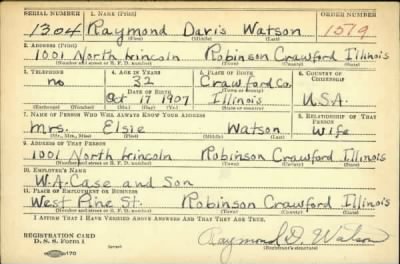 SERIAL NUMBER 1. NAME (Print) ORDER NUMBER
1304 Raymond Davis Watson 1579
(First) (Middle) (Last)
2. ADDRESS (Print)
1001 North Lincoln Robinson Crawford Illinois
(Number and street or R. F. D. number) (Town) (County) (State)
3. TELEPHONE 4. AGE IN YEARS 5. PLACE OF BIRTH 6. COUNTRY OF CITIZENSHIP
no 32 Crawford Co.
DATE OF BIRTH (Town or county)
Oct 17 1907 Illinois U.S.A.
(Exchange) (Number) (Mo.) (Day) (Yr.) (State or country)
7. NAME OF PERSON WHO WILL ALWAYS KNOW YOUR ADDRESS 8. RELATIONSHIP OF THAT PERSON
Mrs. Elsie Watson Wife
(Mr., Mrs., Miss) (First) (Middle) (Last)
9. ADDRESS OF THAT PERSON
1001 North Lincoln Robinson Crawford Illinois
(Number and street or R. F. D. number) (Town) (County) (State)
10. EMPLOYER'S NAME
W.A. Case and Son
11. PLACE OF EMPLOYMENT OR BUSINESS
West Pine St. Robinson Crawford Illinois
(Number and street or R. F. D. number) (Town) (County) (State)
I AFFIRM THAT I HAVE VERIFIED ABOVE ANSWERS AND THAT THEY ARE TRUE.
REGISTRATION CARD
D. S. S. Form 1 Raymond D. Watson
(over) (Registrant's signature)